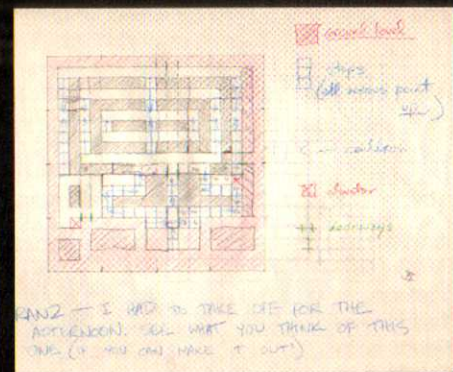 ground level
steps
(all arrows point
up)
elevator
doorways
FRANZ — I HAD TO TAKE OFF FOR THE
AFTERNOON. SEE WHAT YOU THINK OF THIS
ONE (IF YOU CAN MAKE IT OUT!)